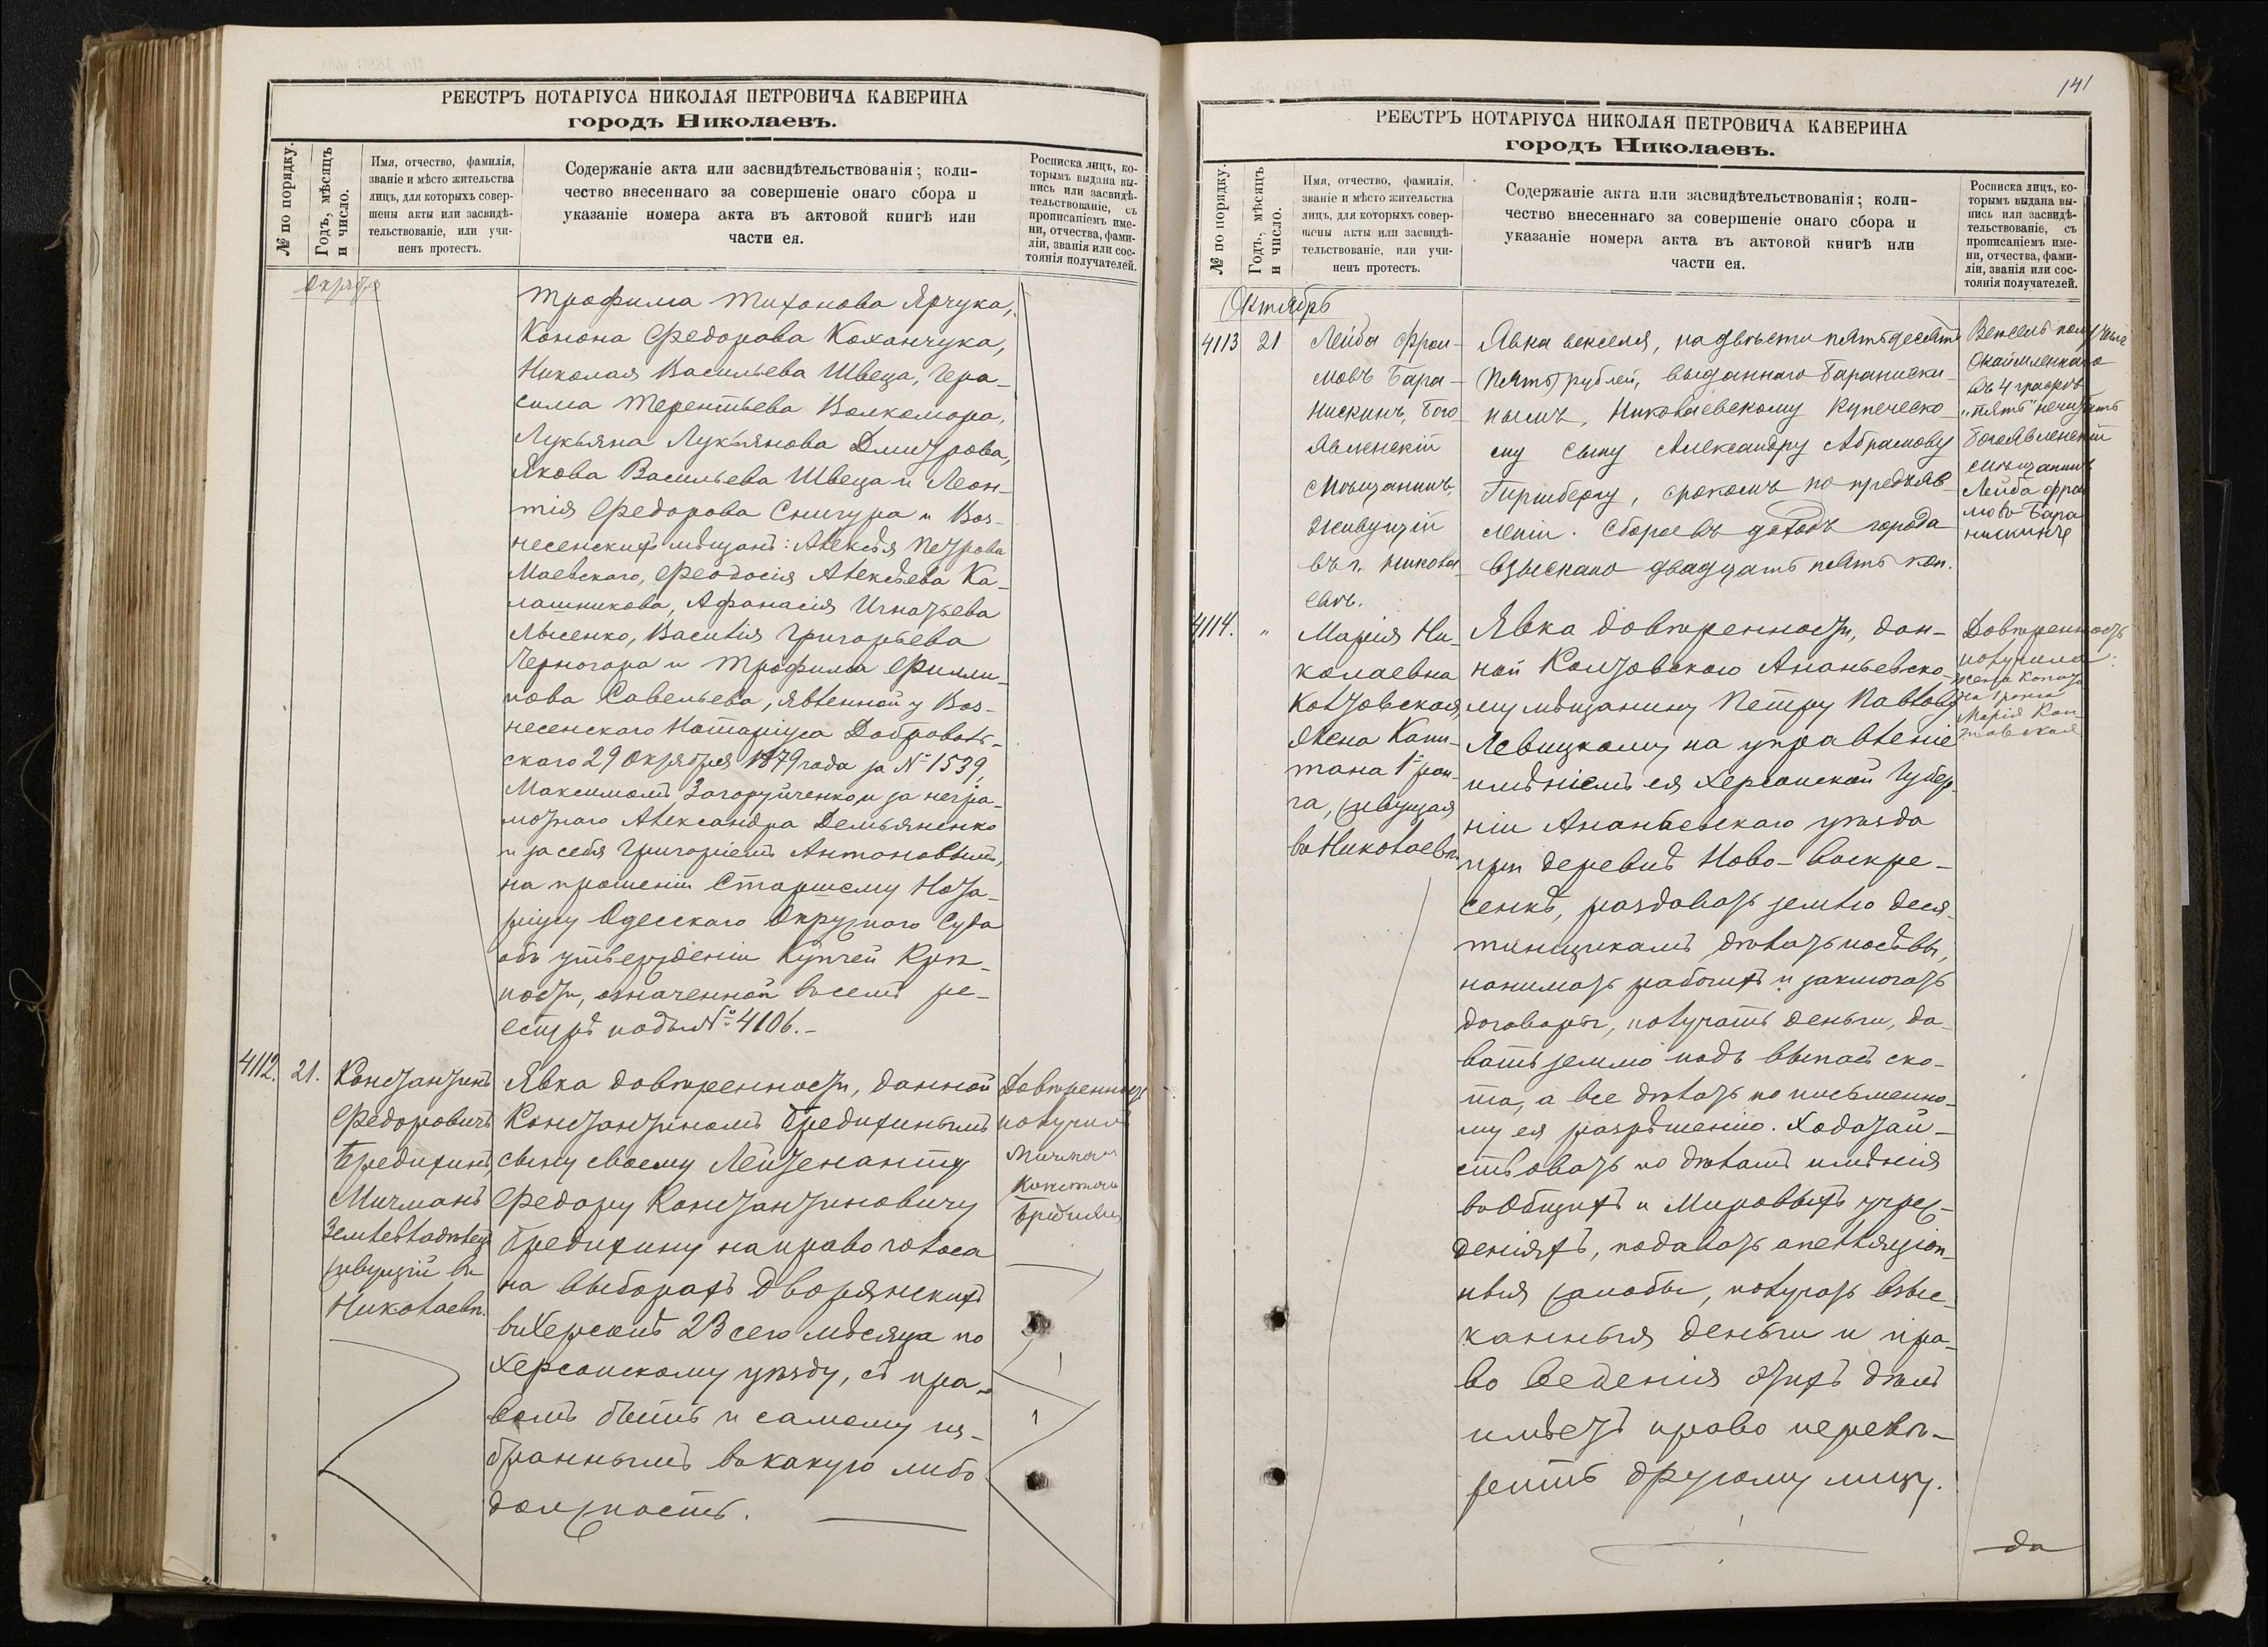 РЕЕСТРЪ НОТАРІУСА НИКОЛАЯ ПЕТРОВИЧА КАВЕРИНА
городъ Николаевъ.
№ по порядку.
Годъ, мѣсяцъ
и число.
Имя, отчество, фамилія,
званіе и мѣсто жительства
лицъ, для которыхъ совер-
шены акты или засвидѣ-
тельствованіе, или учи-
ненъ протестъ.
Содержаніе акта или засвидѣтельствованія; коли-
чество внесеннаго за совершеніе онаго сбора и
указаніе номера акта въ актовой книгѣ или
части ея.
Росписка лицъ, ко-
торымъ выдана вы-
пись или засвидѣ-
тельствованіе, съ
прописаніемъ име-
ни, отчества, фами-
ліи, званія или сос-
тоянія получателей.
Октября
Трофима Тихонова Ярчука,
Конона Федорова Коханчука,
Николая Васильева Швеца, Гера-
сима Терентьева Волкомора,
Лукьяна Лукьянова Дмитрова,
Якова Васильева Швеца и Леон-
тія Федорова Снигура и Воз-
несенскихъ мѣщанъ: Алексѣя Петрова
Маевскаго, Феодосія Алексѣева Ка-
лашникова, Афанасія Игнатьева
Лысенко, Василія Григорьева
Черногора и Трофима Филип-
пова Савельева, явленной у Воз-
несенскаго Нотаріуса Доброволь-
скаго 29 Октября 1879 года за № 1539,
Максимомъ Загоруйченко, и за негра-
мотнаго Александра Демьяненко
и за себя Григоріемъ Антоновымъ,
на прошеніи Старшему Нота-
ріусу Одесскаго Окружнаго Суда
объ утвержденіи Купчей Крѣ-
пости, означенной въ семъ ре-
естрѣ подъ № 4106.-
4112. 21.
Константинъ
Федоровичъ
Бредихинъ
Мичманъ
Землевладѣлецъ
живущій въ
Николаевѣ.
Явка довѣренности, данной
Константиномъ Бредихинымъ
сыну своему Лейтенанту
Федору Константиновичу
Бредихину на право голоса
на выборахъ Дворянскихъ
въ Херсонѣ 23 сего мѣсяца по
Херсонскому уѣзду, съ пра-
вомъ быть и самому из-
браннымъ въ какую либо
должность.
Довѣренность
получилъ
Мичманъ
141
РЕЕСТРЪ НОТАРІУСА НИКОЛАЯ ПЕТРОВИЧА КАВЕРИНА
городъ Николаевъ.
№ по порядку.
Годъ, мѣсяцъ
и число.
Имя, отчество, фамилія,
званіе и мѣсто жительства
лицъ, для которыхъ совер-
шены акты или засвидѣ-
тельствованіе, или учи-
ненъ протестъ.
Содержаніе акта или засвидѣтельствованія; коли-
чество внесеннаго за совершеніе онаго сбора и
указаніе номера акта въ актовой книгѣ или
части ея.
Росписка лицъ, ко-
торымъ выдана вы-
пись или засвидѣ-
тельствованіе, съ
прописаніемъ име-
ни, отчества, фами-
ліи, званія или сос-
тоянія получателей.
Октябрь
4113 21
Лейба Фрои-
мовъ Бара-
нискинъ, Бого-
явленскій
мѣщанинъ,
живущій
въ г. Никола-
евѣ.
Явка векселя, на двѣсти пятьдесятъ
(пять) рублей, выданнаго Бараниски-
нымъ, Николаевскому Купеческо-
му сыну Александру Абрамову
Гиршбергу, срокомъ по предъяв-
леніи. Сбора въ доходъ города
взыскано двадцать пять коп.
Вексель получилъ
Окаймленнаго
въ 4 графѣ
„пять“ нечитать
Богоявленскій
мѣщанинъ
Лейба Фрои
мовъ Бара
нискинъ
4114. „
Марія Ни-
колаевна
Колтовская,
жена Капи-
тана 1го ран-
га, живущая
въ Николаевѣ.
Явка довѣренности, дан-
ной Колтовскою Ананьевско-
му мѣщанину Петру Павлову
Левицкому на управленіе
имѣніемъ ея Херсонской Губер-
ніи Ананьевскаго уѣзда
при деревнѣ Ново-Воскре-
сенкѣ, раздавать землю деся-
тинщикамъ, дѣлать посѣвы,
нанимать рабочихъ и заключать
договоры, получать деньги, да-
вать землю подъ выпасъ ско-
та, а все дѣлать по письменно-
му ея разрѣшенію. Ходатай-
ствовать по дѣламъ имѣнія
въ Общихъ и Мировыхъ учреж-
деніяхъ, подавать апелляціон-
ныя жалобы, получать взыс-
канныя деньги и пра-
во веденія этихъ дѣлъ
имѣетъ право перевѣ-
рить другому лицу.
Довѣренность
получила:
жена Капита
на 1 ранга
Марія Кол-
товская
да